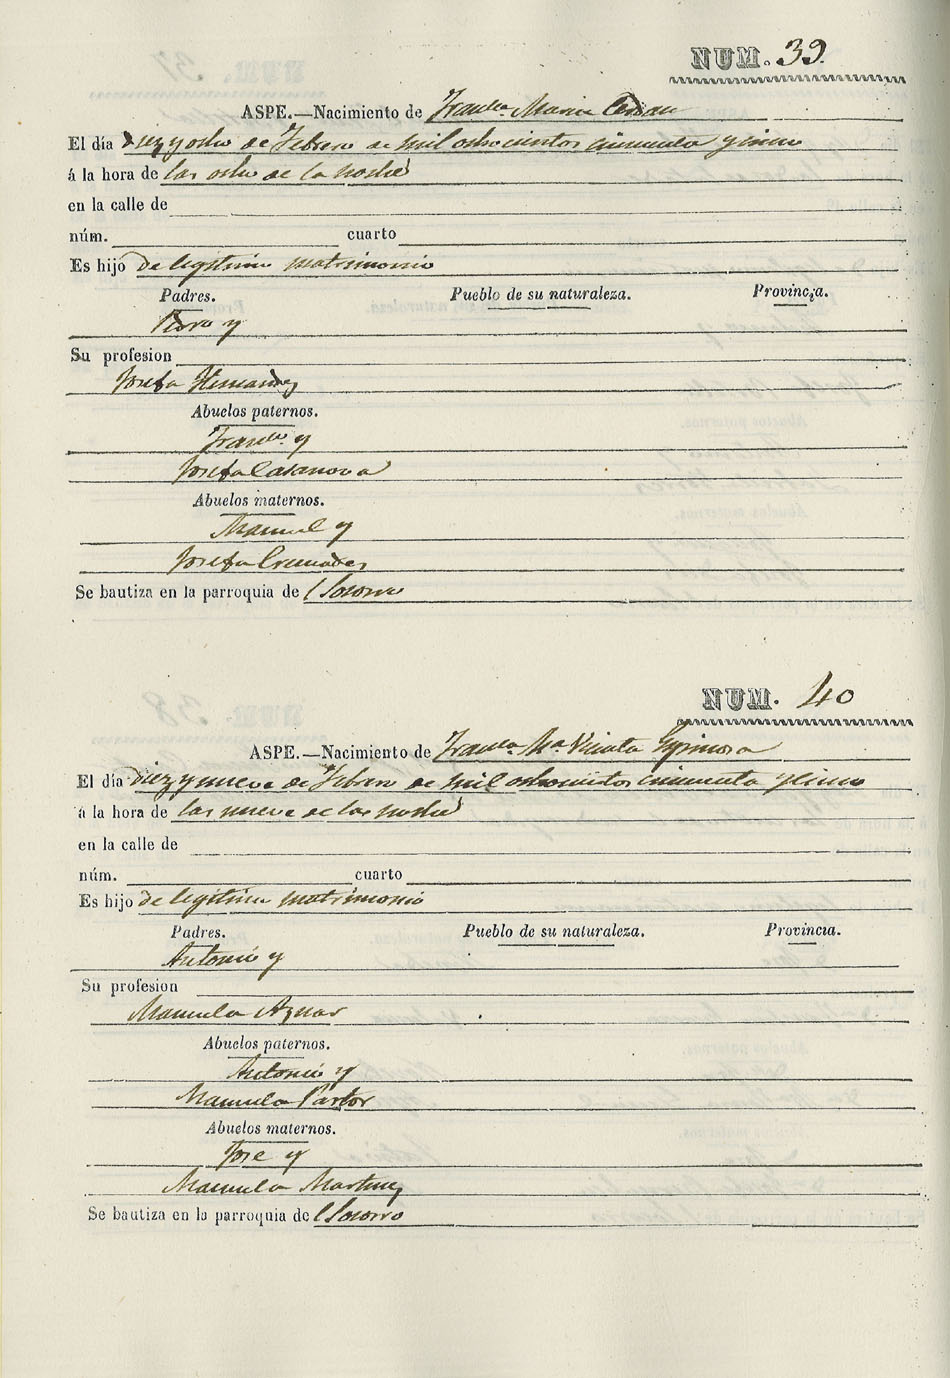 NUM. 39.
ASPE.—Nacimiento de Fran.ca Maria
El día diez y ocho de Febrero de mil ochocientos cincuenta y cinco
á la hora de las ocho de la noche
en la calle de
núm. cuarto
Es hijo de legitimo matrimonio
Padres. Pueblo de su naturaleza. Provincia.
y
Su profesion
Josefa Hernandez
Abuelos paternos.
Fran.co y
Josefa Casanova
Abuelos maternos.
Manuel y
Josefa Cremades
Se bautiza en la parroquia de l Socorro
NUM. 40
ASPE.—Nacimiento de Fran.ca M.a Vicenta Espinosa
El día diez y nueve de Febrero de mil ochocientos cincuenta y cinco
á la hora de las nueve de la noche
en la calle de
núm. cuarto
Es hijo de legitimo matrimonio
Padres. Pueblo de su naturaleza. Provincia.
Antonio y
Su profesion
Manuela Aznar
Abuelos paternos.
Antonio y
Manuela Pastor
Abuelos maternos.
Jose y
Manuela Martinez
Se bautiza en la parroquia de l Socorro